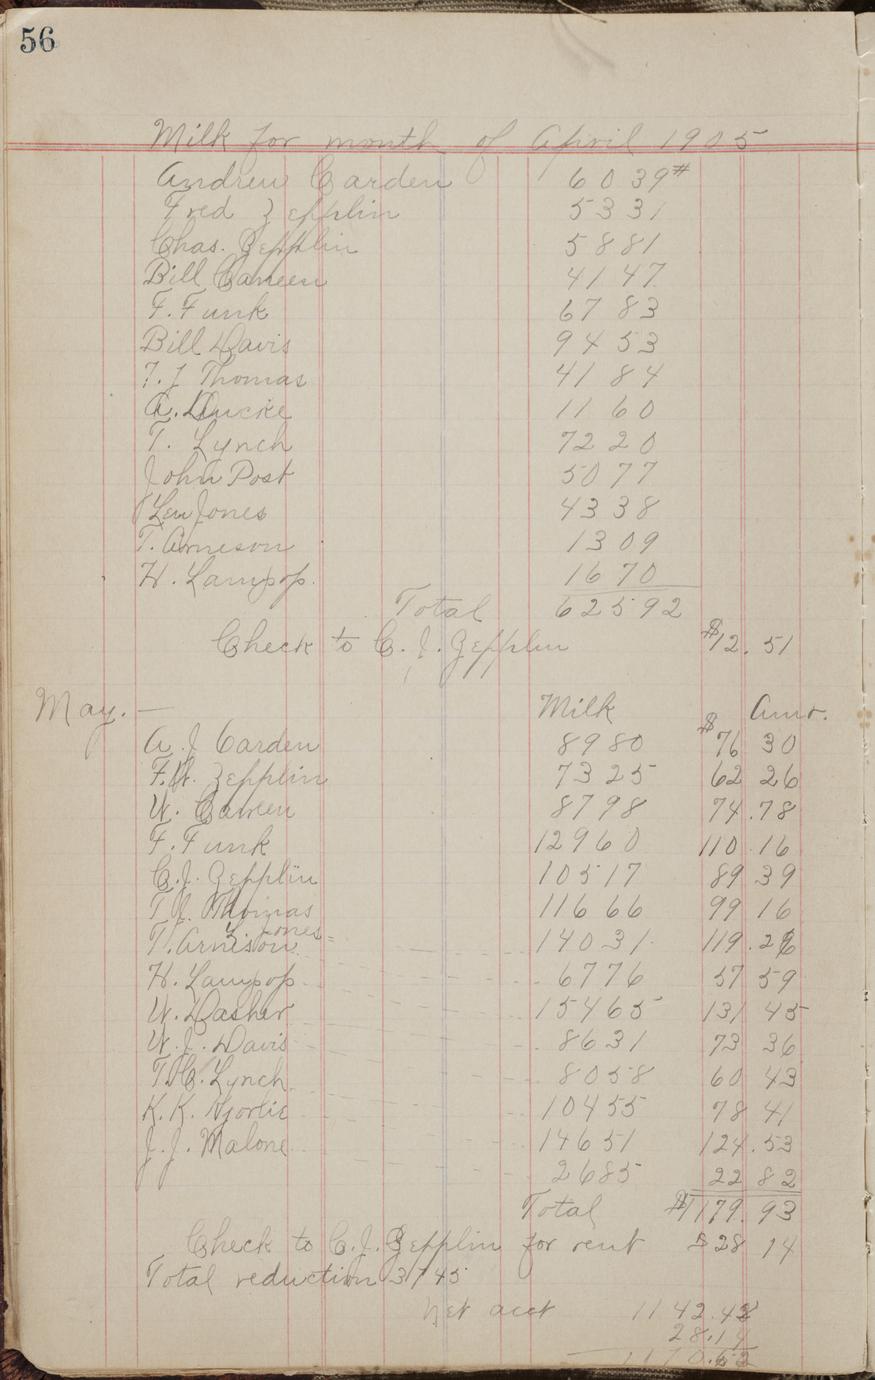 56
Milk for month of April 1905
Andrew Carden 6039#
Fred Zepplin 5331
Chas. Zepplin 5881
Bill Cameen 4147
F. Funk 6783
Bill Davis 9453
T. J Thomas 4184
A. 1160
T. Lynch 7220
John Post 5077
Lew Jones 4338
T. Arneson 1309
H. Lampop. 1670
Total 62592
Check to C. J. Zepplin $12.51
May. — Milk Amo.
A. J Carden 8980 $76 30
F.W. Zepplin 7325 62 26
W. Cameen 8798 74.78
F. Funk 12960 110 16
C.J. Zepplin 10517 89 39
T J. Thomas 11666 99 16
Jones
T. Arnison 14031 119.26
H. Lampop 6776 57 59
W. Dasher 15465 131 45
W. J. Davis 8631 73 36
T.C. Lynch 8058 60 43
K. K. 10455 78 41
J. J. Malone 14651 124.53
2685 22 82
Total $1179.93
Check to C.J. Zepplin for rent $28 14
Total reduction 3745
Net acct 1142.48
28.14
1170.62